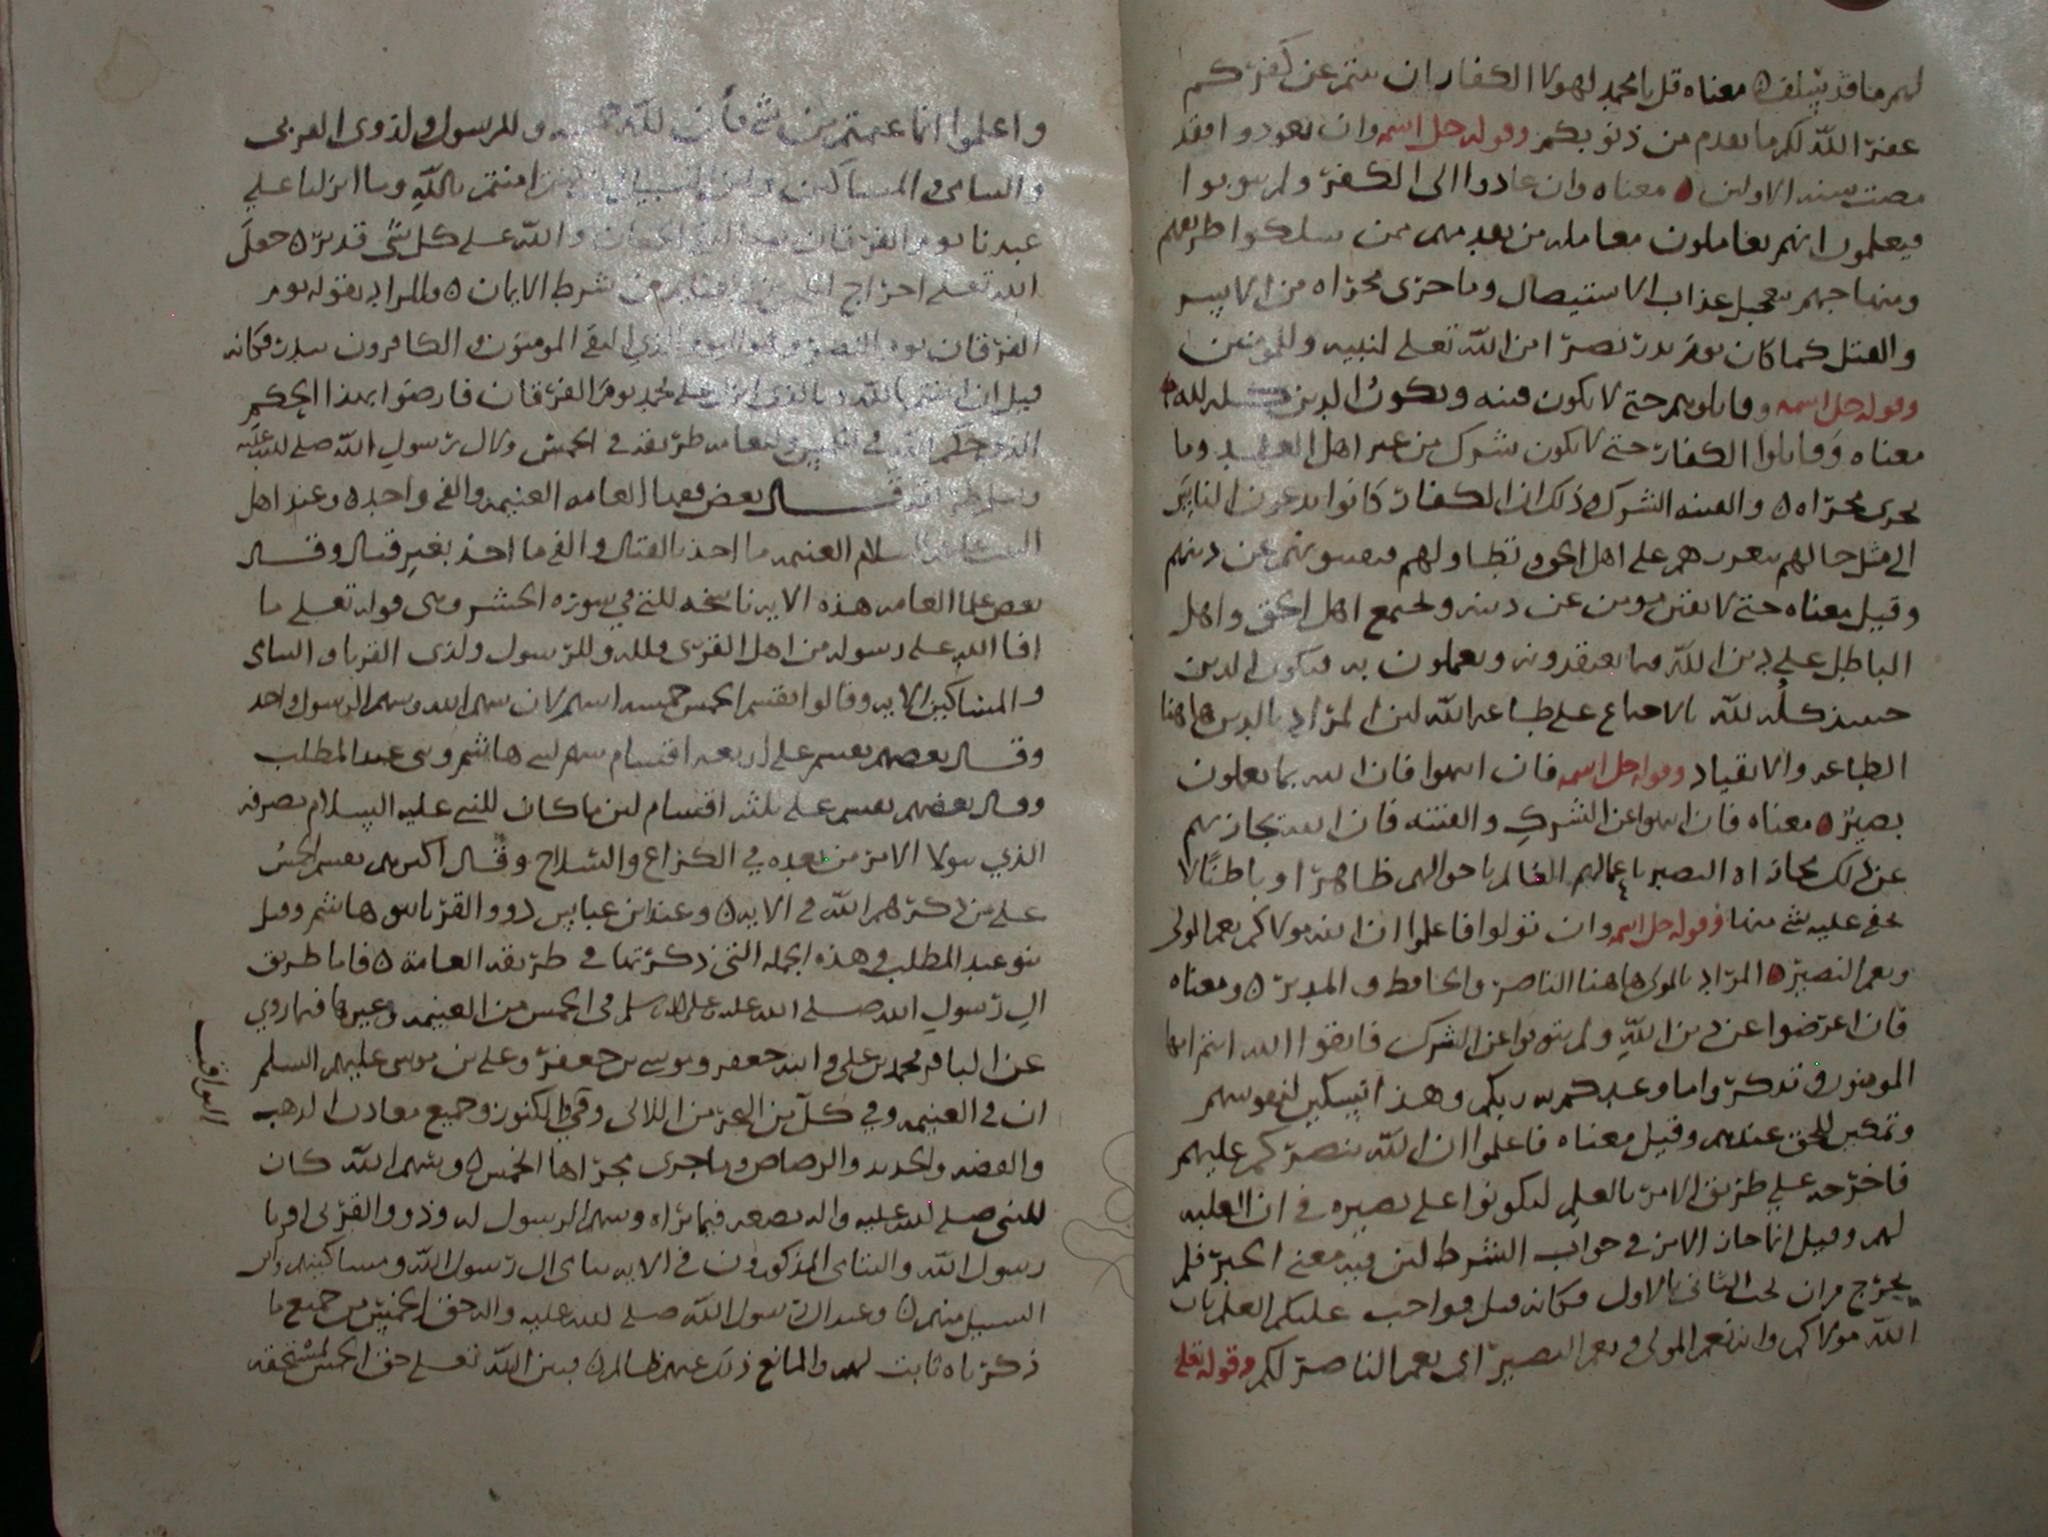 لهم ما قد سلف ه معناه قل يا محمد لهولا الكفار ان ينتهوا عن كفركم
غفر الله لكم ما تقدم من ذنوبكم وقوله جل اسمه وان تعودوا فقد
مضت سنه الاولين ه معناه وان عادوا الى الكفر ولم يتوبوا
فيعلموا انهم يعاملون معامله من بعدمهم ممن سلكوا طريقهم
ومنهاجهم بتعجيل عذاب الاستيصال وما جرى مجراه من الاسر
والقتل كما كان يوم بدر نصرا من الله تعلى لنبيه وللمومنين
وقوله جل اسمه وقاتلوهم حتى لا يكون فتنه ويكون الدين كله لله
معناه وقاتلوا الكفار حتى لا يكون شرك من غير اهل العهد وما
يجرى مجراه ه والفتنه الشرك وذلك ان الكفار كانوا يدعون الناس
الى مثل حالهم بتعززهم على اهل الحق وتطاولهم فيفتنونهم عن دينهم
وقيل معناه حتى لا يفتن مومن عن دينه ولجمع اهل الحق واهل
الباطل على دين الله فيما يعتقدونه ويعملون به فيكون الدين
حينئذ كله لله بالاجماع على طاعه الله لان المراد بالدين هاهنا
الطاعه والانقياد وقوله جل اسمه فان انتهوا فان الله بما يعملون
بصير ه معناه فان انتهوا عن الشرك والفتنه فان الله يجازيهم
عن ذلك مجازاه البصير باعمالهم العالم باحوالهم ظاهرا وباطنا لا
يخفى عليه شي منها وقوله جل اسمه وان تولوا فاعلموا ان الله مولاكم نعم المولى
ونعم النصير ه المراد بالمولى هاهنا الناصر والحافظ والمدبر ه ومعناه
فان اعرضوا عن دين الله ولم يتوبوا عن الشرك فاتقوا الله انتم ايها
المومنون وتذكروا ما وعدكم به ربكم وهذا تسكين لنفوسهم
وتمكين للحق عندهم وقيل معناه فاعلموا ان الله ينصركم عليهم
فاخرجه على طريق الامر بالعلم ليكونوا على بصيره في ان الغلبه
لهم وقيل انما جاز الامر في جواب الشرط لان فيه معنى الخبر فلم
يخرج من ان يجب الثاني بالاول فكانه قيل فواجب عليكم العلم بان
الله مولاكم وانه نعم المولى ونعم النصير اي نعم الناصر لكم وقوله تعلى
واعلموا انما غنمتم من شي فان لله خمسه وللرسول ولذوى القربى
واليتامى والمساكين وابن السبيل ان كنتم امنتم بالله وما انزلنا على
عبدنا يوم الفرقان يوم التقى الجمعان والله على كل شى قدير ه جعل
الله تعلى اخراج الخمس من الغنايم من شرط الايمان ه والمراد بقوله يوم
الفرقان يوم النصر وهو اليوم الذي التقى المومنون الكافرون ببدر فكانه
قيل ان امنتم بالله وبالذى انزل على محمد يوم الفرقان فارضوا بهذا الحكم
الذى حكم الله في الخمس وللعامه طريقه في الخمس ولال رسول الله صلى الله عليه
وسلم طريقه قال بعض فقها العامه الغنيمه والفى واحده وعند اهل
البيت عليهم السلام الغنيمه ما اخذ بالقتال والفى ما اخذ بغير قتال وقال
بعض علما العامه هذه الايه ناسخه للتي في سوره الحشر وهى قوله تعلى ما
افا الله على رسوله من اهل القرى فلله وللرسول ولذى القربا واليتامى
والمساكين الايه وقالوا يقسم الخمس خمسه اسهم لان سهم الله وسهم الرسول واحد
وقال بعضهم يقسم على اربعه اقسام سهم لبنى هاشم وبنى عبد المطلب
وقال بعضهم يقسم على ثلثه اقسام لان ما كان للنبي عليه السلام يصرفه
الذي يتولا الامر من بعده في الكراع والسلاح وقال اكثرهم يقسم الخمس
على من ذكرهم الله في الايه ه وعند ابن عباس ذوو القربا بنو هاشم وقيل
بنو عبد المطلب وهذه الجمله التي ذكرتها في طريقه العامة ه فاما طريق
ال رسول الله صلى الله عليه وعلى اله وسلم فى الخمس من الغنيمه وغيرها فيما روي
عن الباقر محمد بن على وابنه جعفر وموسى بن جعفر وعلى بن موسى عليهم السلم
ان في الغنيمه وفي كل من البحر من اللالى وفي الكنوز وجميع معادن الذهب
والفضه والحديد والرصاص وما جرى مجراها الخمس ه وسهم الله كان
للنبي صلى الله عليه واله يضعه فيما يراه وسهم الرسول له وذوو القربى اقربا
رسول الله واليتامى المذكورون في الايه يتامى ال رسول الله ومساكينهم وابن
السبيل منهم ه وعند ال رسول الله صلى الله عليه واله حق الخمس من جميع ما
ذكرناه ثابت لهم والمانع ذلك عنهم ظالم ه فبين الله تعلى حق الخمس لمستحقه